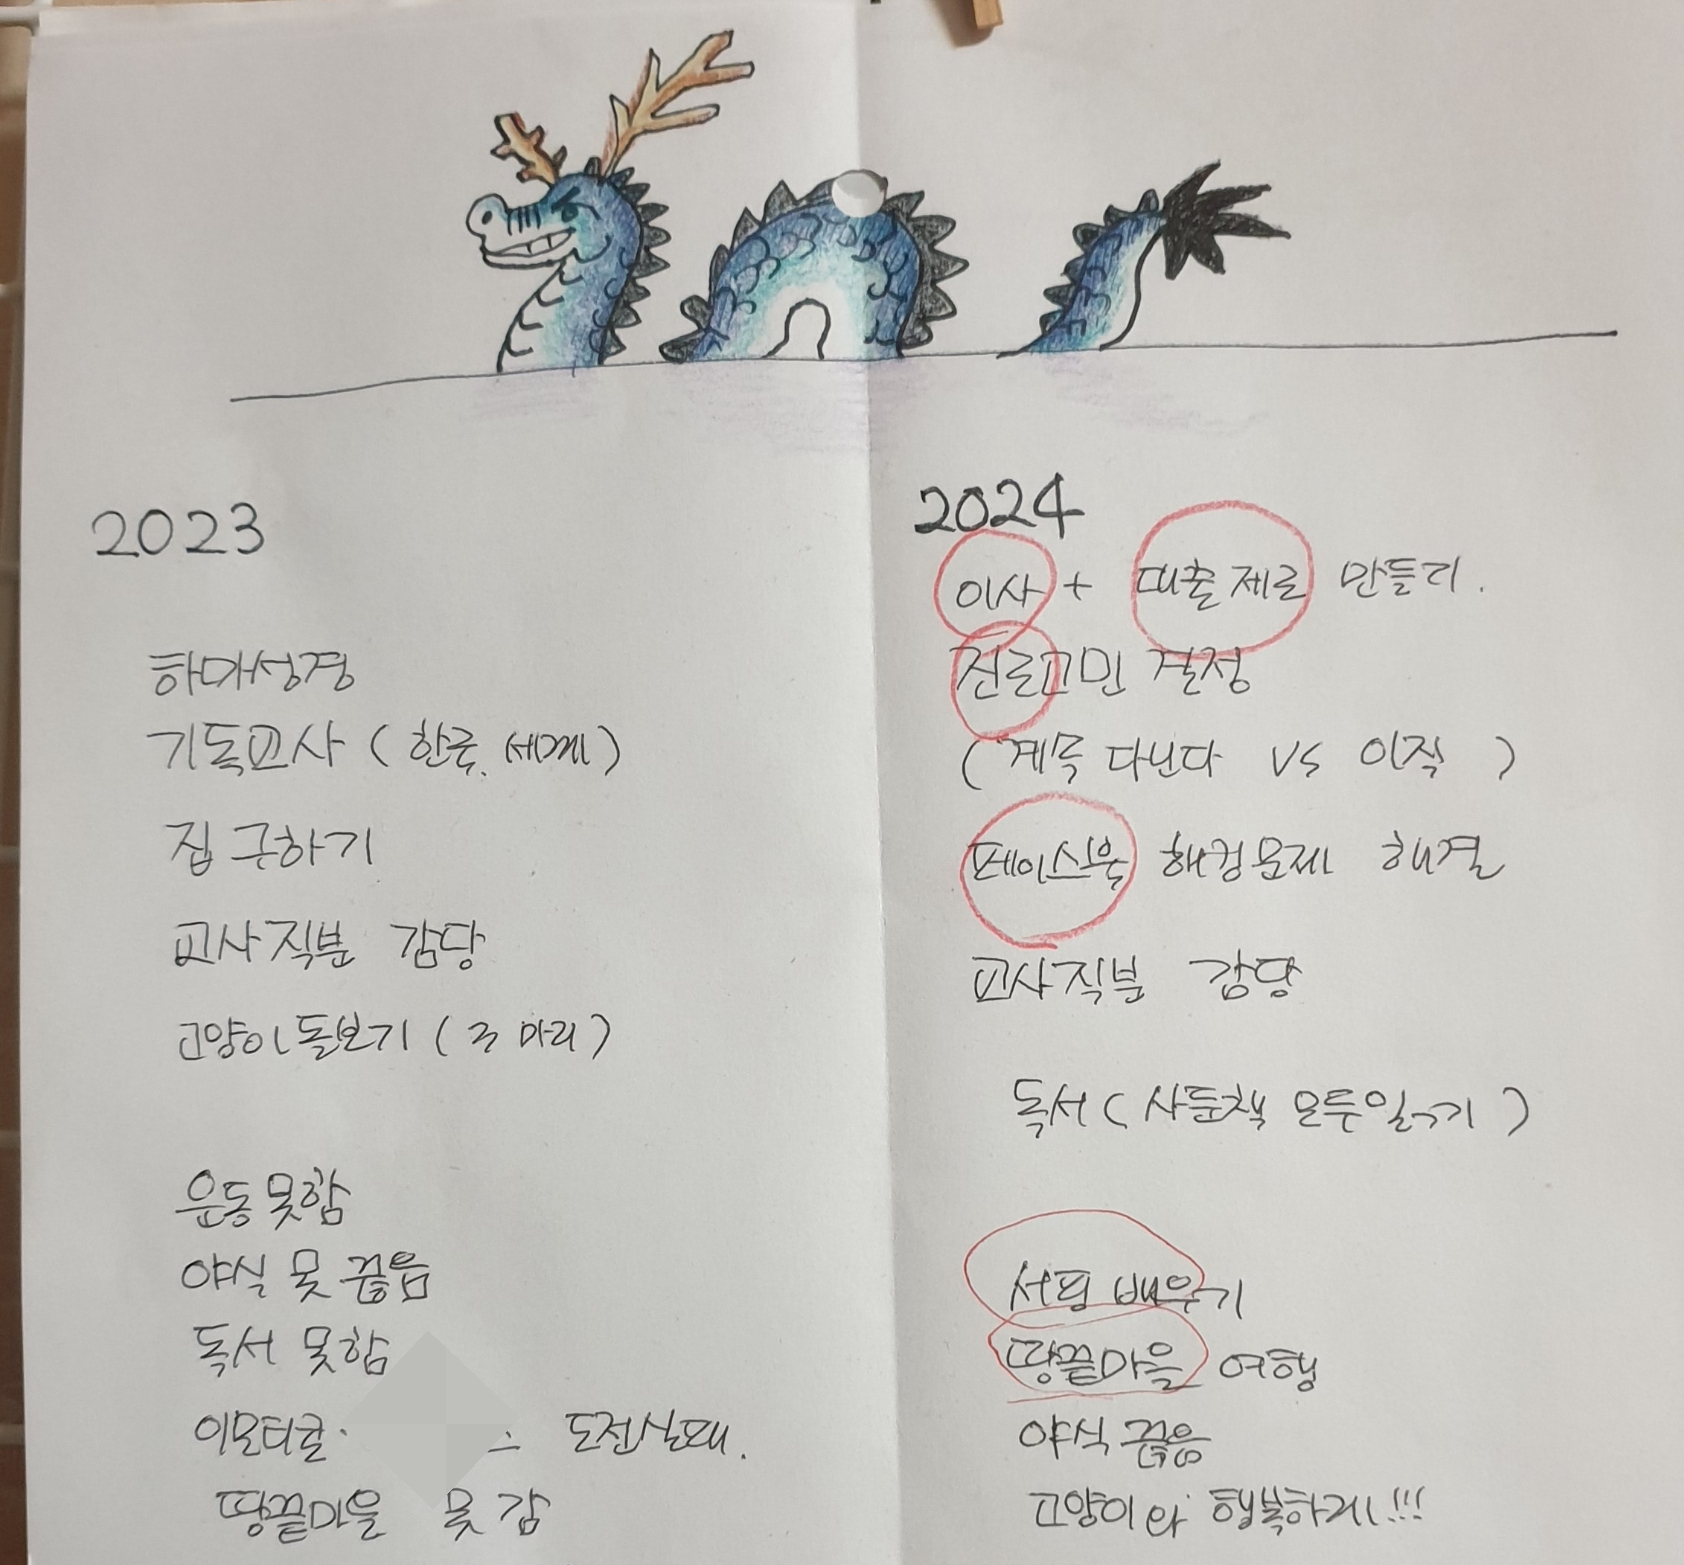 2023
하마성경
기독교사 (한국, 세계)
집 구하기
교사직분 감당
고양이 돌보기 ( 마리)
운동못함
야식 못 끊음
독서 못함
이모티콘· 도전실패.
땅끝마을 못 감
2024
이사 + 대출제로 만들기.
진로고민 결정
(계속 다닌다 vs 이직)
페이스북 해킹문제 해결
교사직분 감당
독서 (사둔책 모두읽기)
서핑 배우기
땅끝마을 여행
야식 끊음
고양이와 행복하게!!!